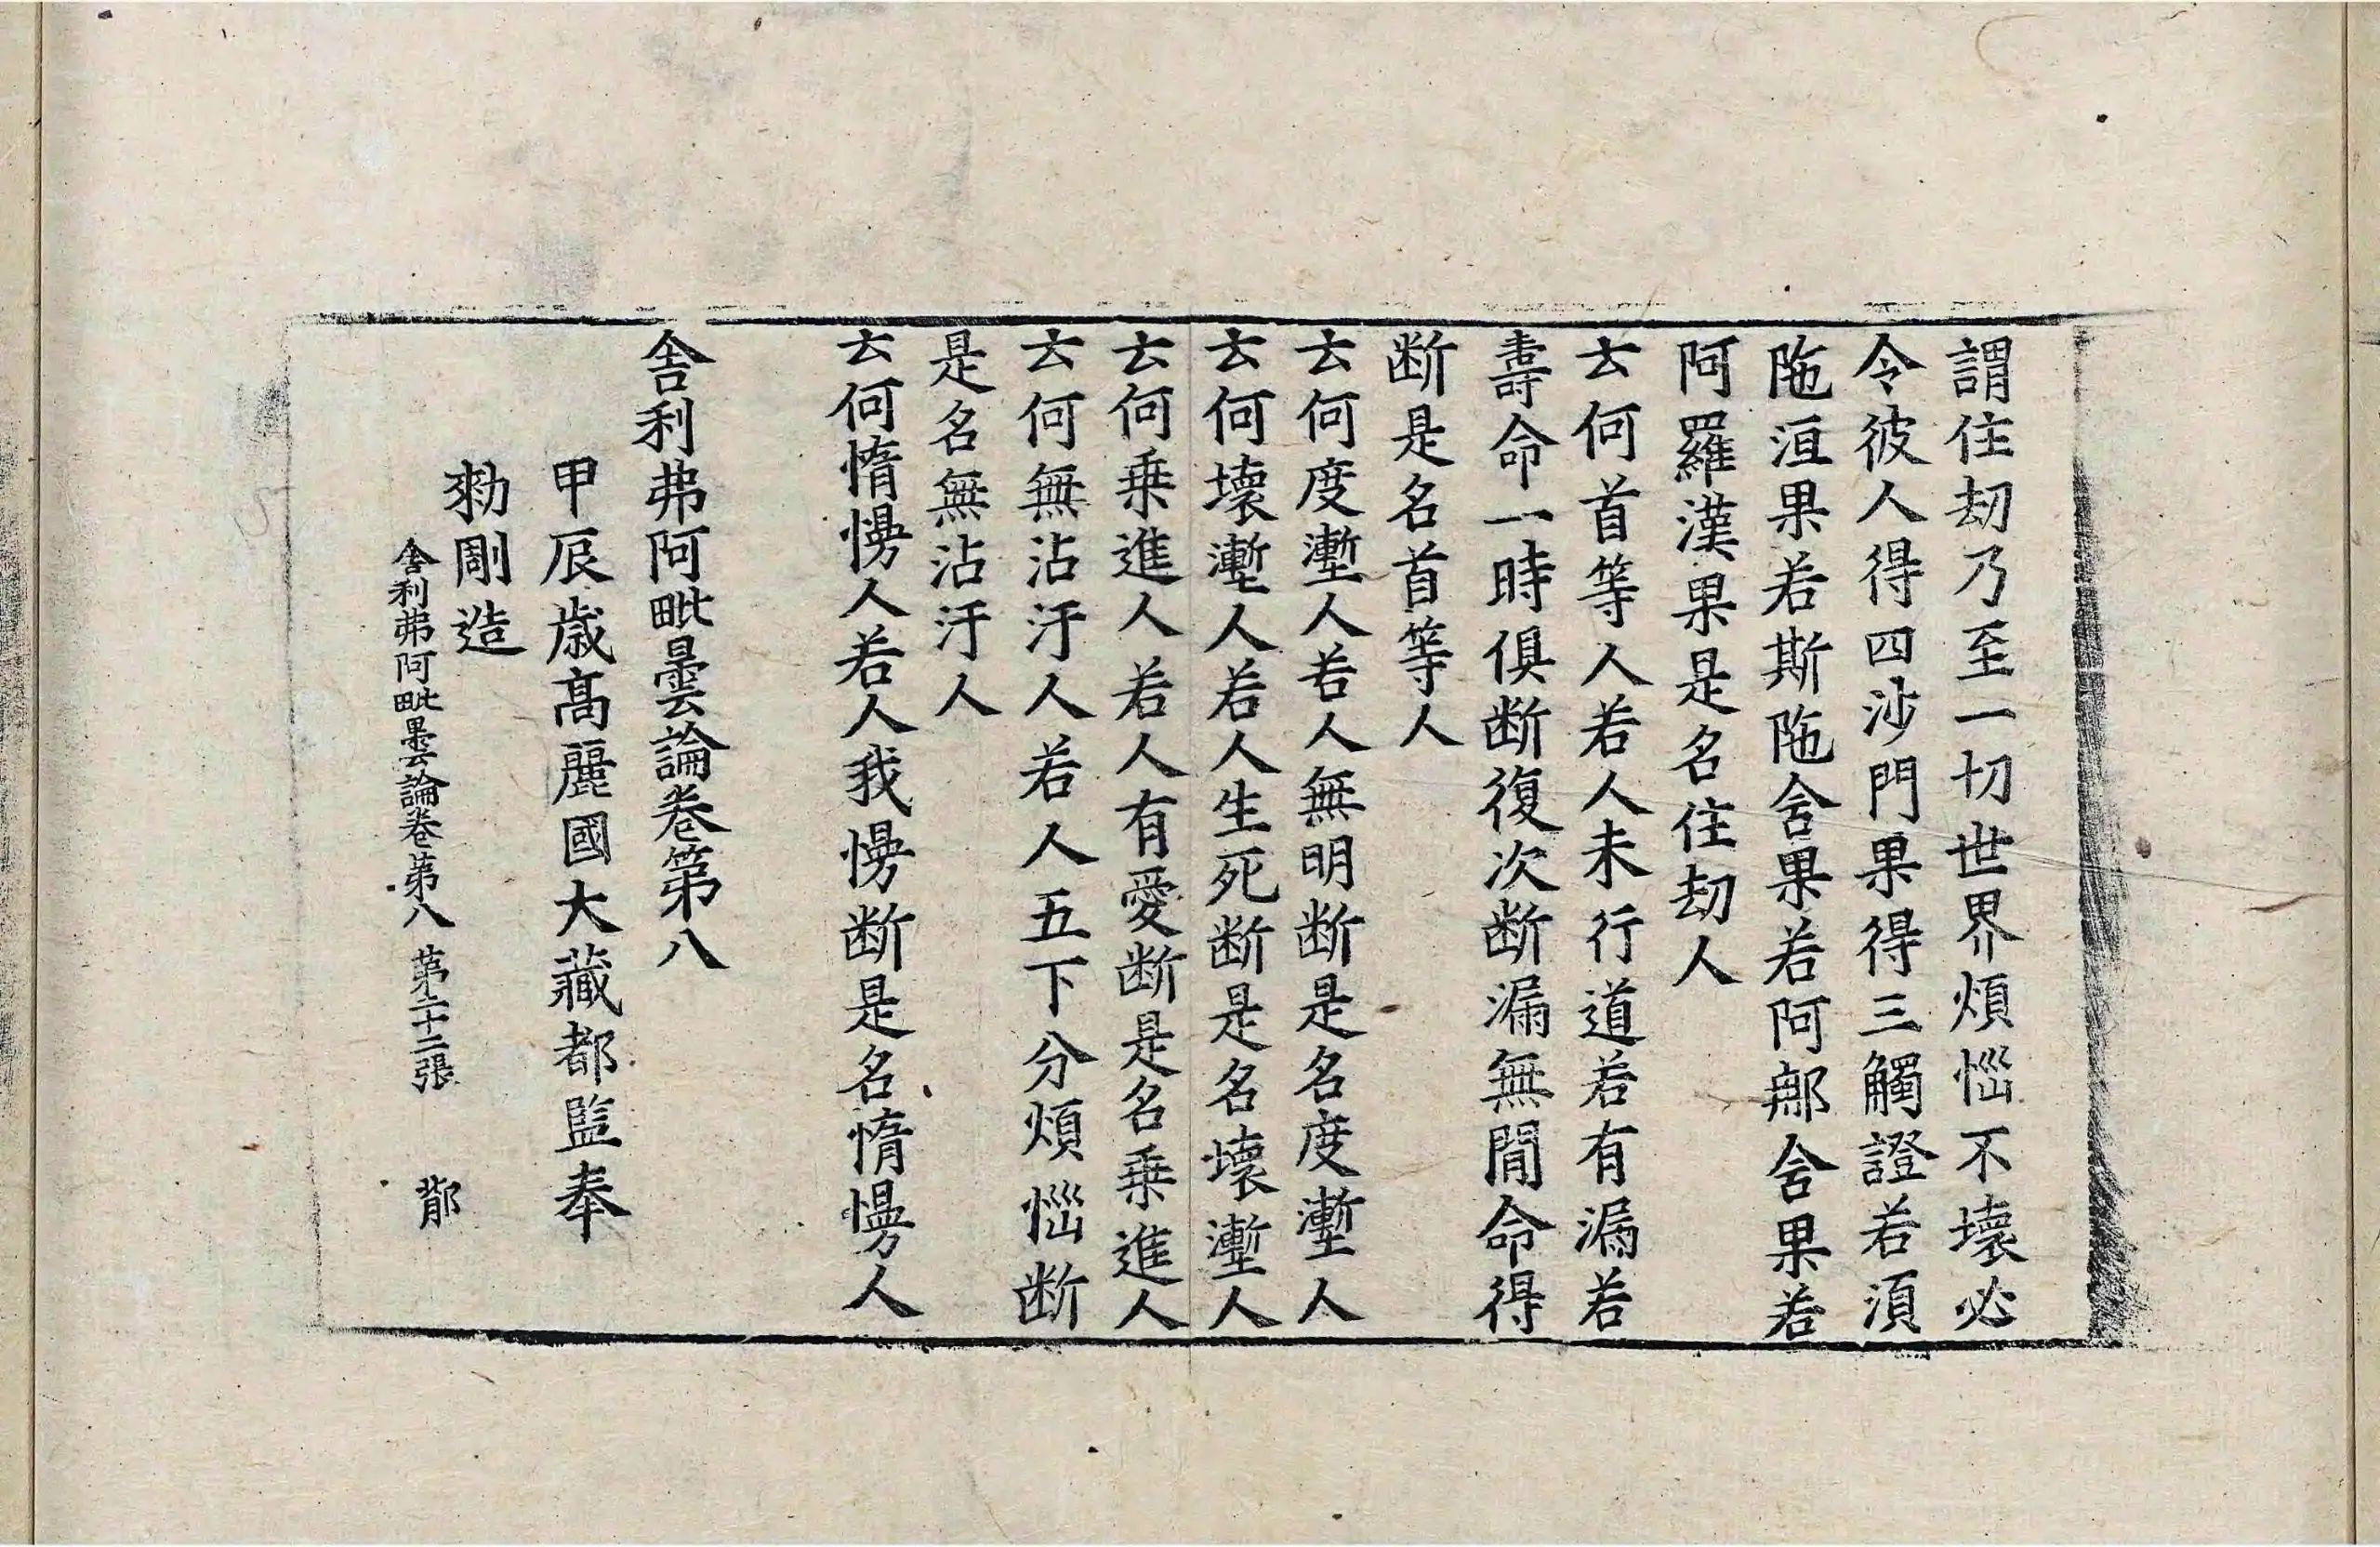 謂住劫乃至一切世界煩惱不壞必
令彼人得四沙門果得三觸證若須
陁洹果若斯陁舍果若阿那舍果若
阿羅漢果是名住劫人
云何首等人若人未行道若有漏若
壽命一時俱断復次断漏無間命得
断是名首等人
云何度壍人若人無明断是名度壍人
云何壞壍人若人生死断是名壞壍人
云何乗進人若人有愛断是名乗進人
云何無沾汙人若人五下分煩惱断
是名無沾汙人
云何惰慢人若人我慢断是名惰慢人
舍利弗阿毗曇論卷第八
甲辰歳髙麗國大藏都監奉
勑彫造
舍利弗阿毗曇論卷第八 第二十二張